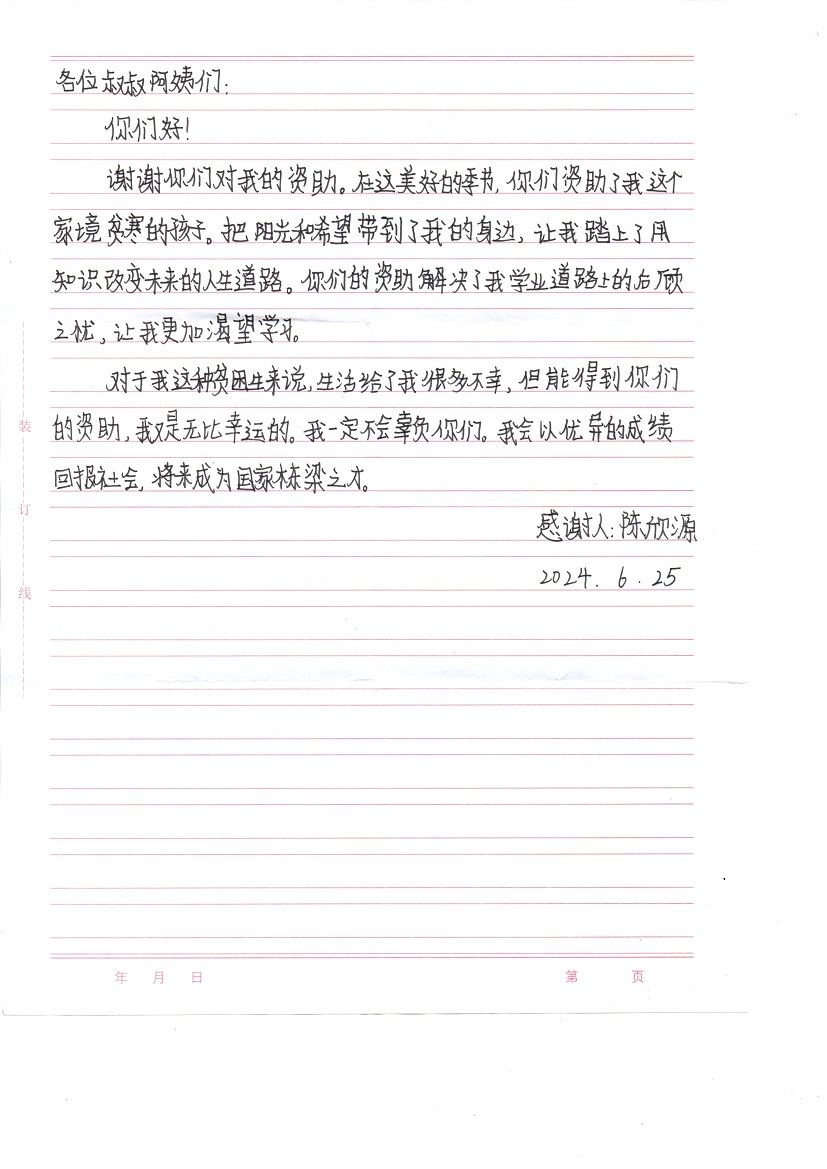 各位叔叔阿姨们:
你们好!
谢谢你们对我的资助。在这美好的季节,你们资助了我这个
家境贫寒的孩子。把阳光和希望带到了我的身边,让我踏上了用
知识改变未来的人生道路。你们的资助解决了我学业道路上的后顾
之忧,让我更加渴望学习。
对于我这种贫困生来说,生活给了我很多不幸,但能得到你们
的资助,我又是无比幸运的。我一定不会辜负你们。我会以优异的成绩
回报社会,将来成为国家栋梁之才。
感谢人:陈欣源
2024.6.25
装
订
线
年 月 日
第 页